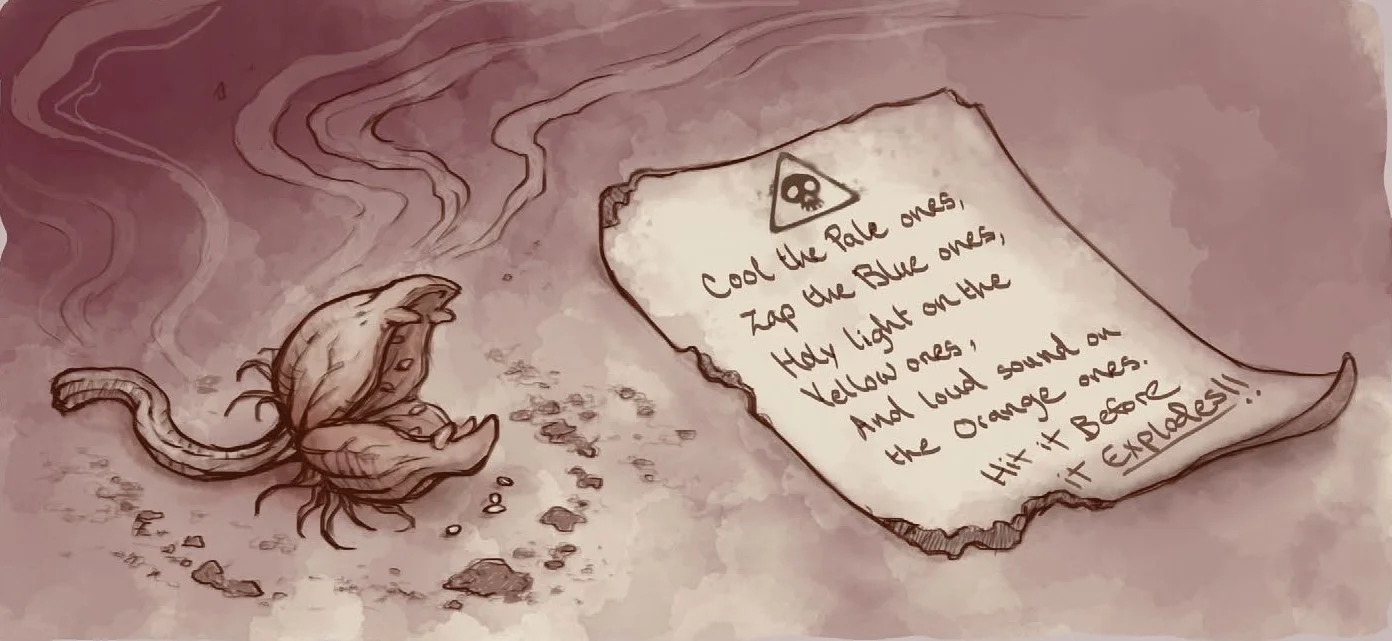 Cool the Pale ones,
Zap the Blue ones,
Holy light on the
Yellow ones,
And loud sound on
the Orange ones.
Hit it Before
it Explodes!!